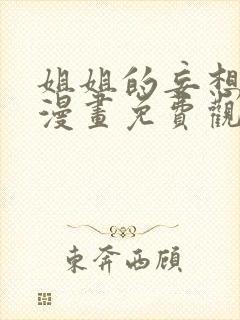 姐姐的妄想
漫畫免費觀
東奔西顧